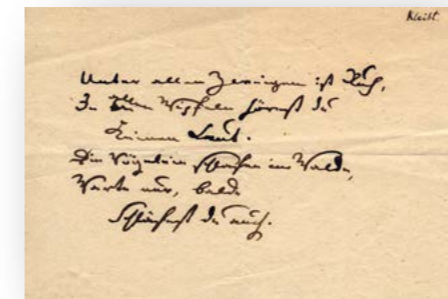 Kleist.
Unter allen Zweigen ist Ruh,
In allen Wipfeln hörest du
Keinen Laut.
Die Vögelein schlafen im Walde,
Warte nur, balde
Schläfest du auch.